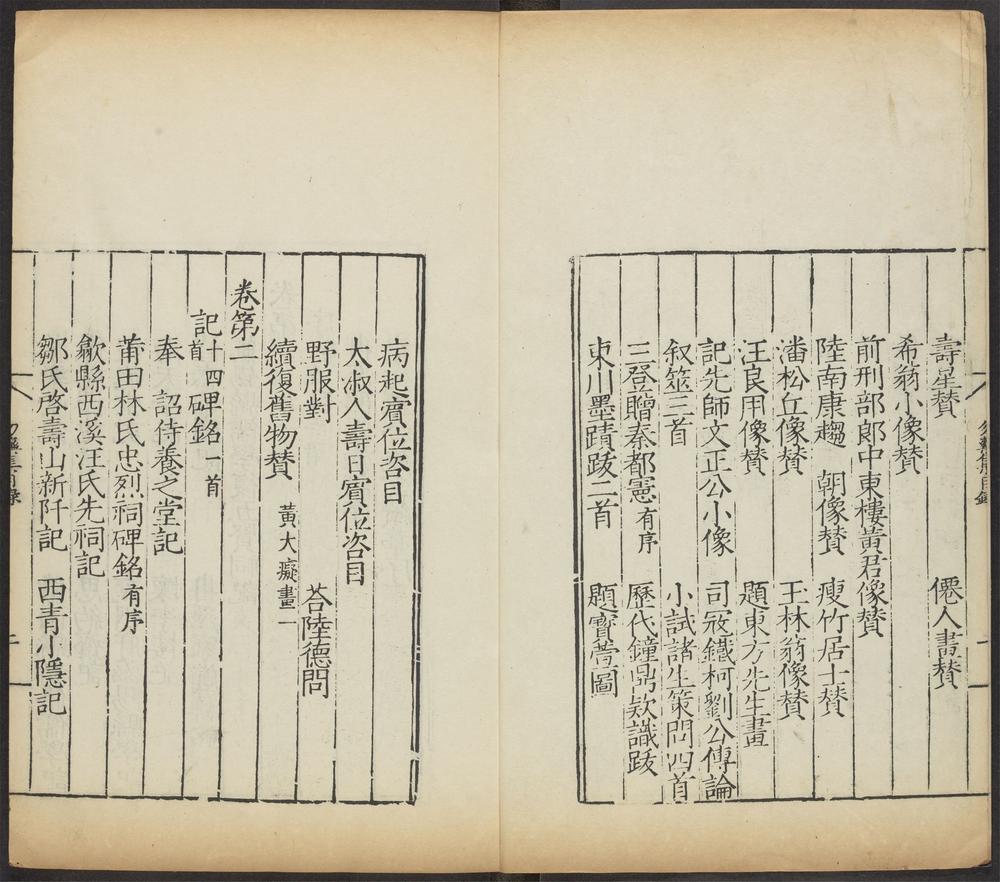 壽星贊　僊人書贊
希翁小像贊
前刑部郎中東樓黃君像贊
陸南康趨　朝像贊　瘦竹居士贊
潘松丘像贊　玉林翁像贊
汪良用像贊　題東方先生畫
記先師文正公小像　司冦鐵柯劉公傳論
叙筵三首　小試諸生策問四首
三登贈秦都憲有序　歷代鐘鼎欵識跋
東川墨蹟跋二首　題寳菅圖
病起賔位咨目
太淑人壽日賔位咨目
野服對　荅陸德問
續復舊物贊　黃大癡畫一
卷第二
記十四首　碑銘一首
奉　詔侍養之堂記
莆田林氏忠烈祠碑銘有序
歙縣西溪汪氏先祠記
鄒氏啓壽山新阡記　西青小隱記